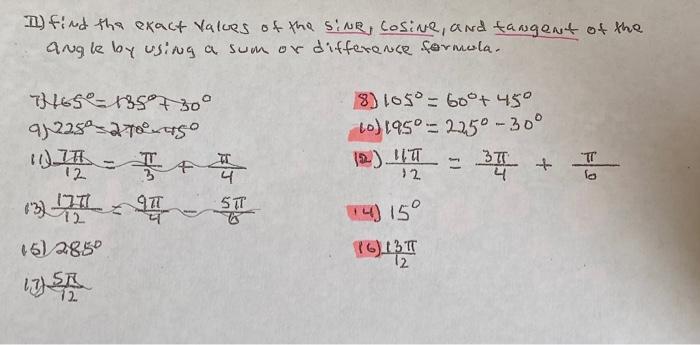 II) find the exact values of the sine, cosine, and tangent of the
angle by using a sum or difference formula.
7) 165° = 135° + 30°
8) 105° = 60° + 45°
9) 225° = 270° - 45°
10) 195° = 225° - 30°
11) 7π/12 = π/3 + π/4
12) 11π/12 = 3π/4 + π/6
13) 17π/12 = 9π/4 - 5π/6
14) 15°
15) 285°
16) 13π/12
17) 5π/12